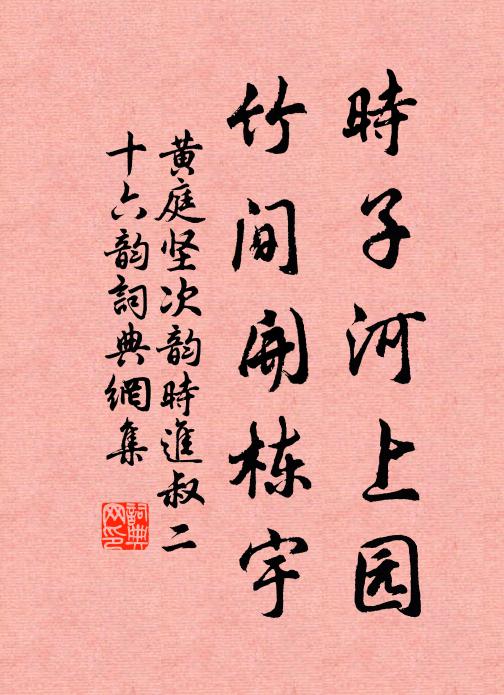 時子河上园
竹间開栋宇
黄庭坚次韵時進叔二
十六韵詞典網集
詞典网印